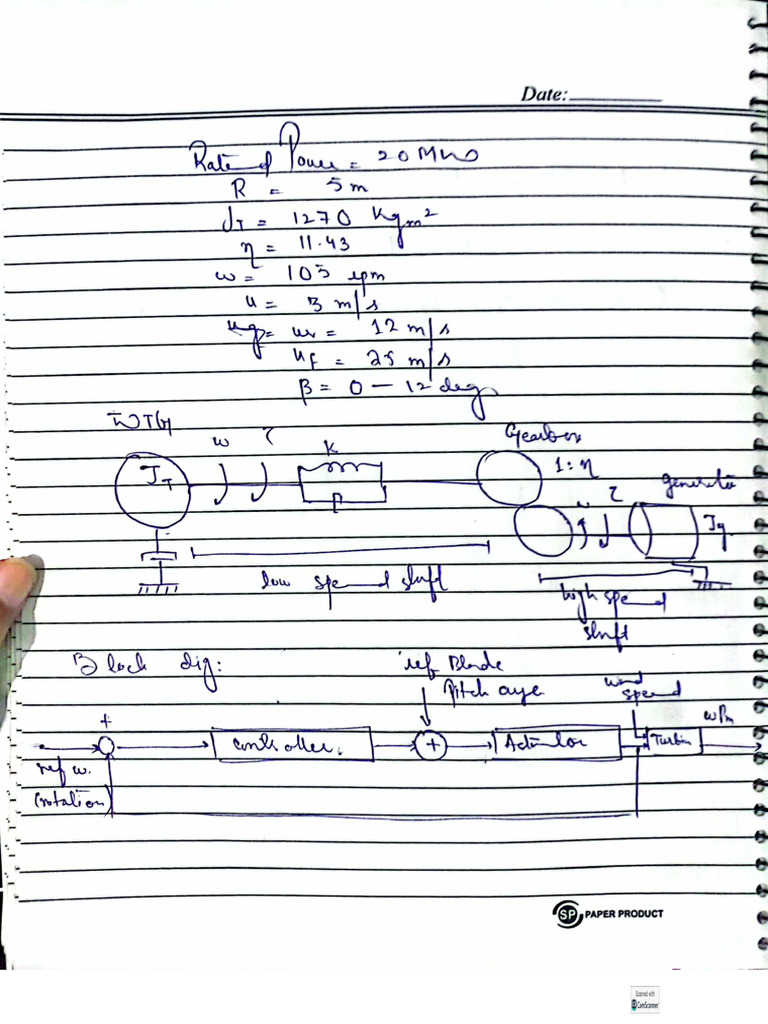 Date:
Rated Power = 20
R = 5 m
J_T = 1270 Kgm²
η = 11.43
ω = 105 rpm
u = 3 m/s
= 12 m/s
u_f = 25 m/s
β = 0 - 12 deg
WTG
ω τ K
Gearbox
J_T
1:η
generator
B
τ
J_g
low speed shaft
high speed
shaft
Block dig:
ref Blade
Pitch
wind
speed
+
controller.
+
Actuator
Turbin
ref w.
(rotation)
SP PAPER PRODUCT
Scanned with
CamScanner